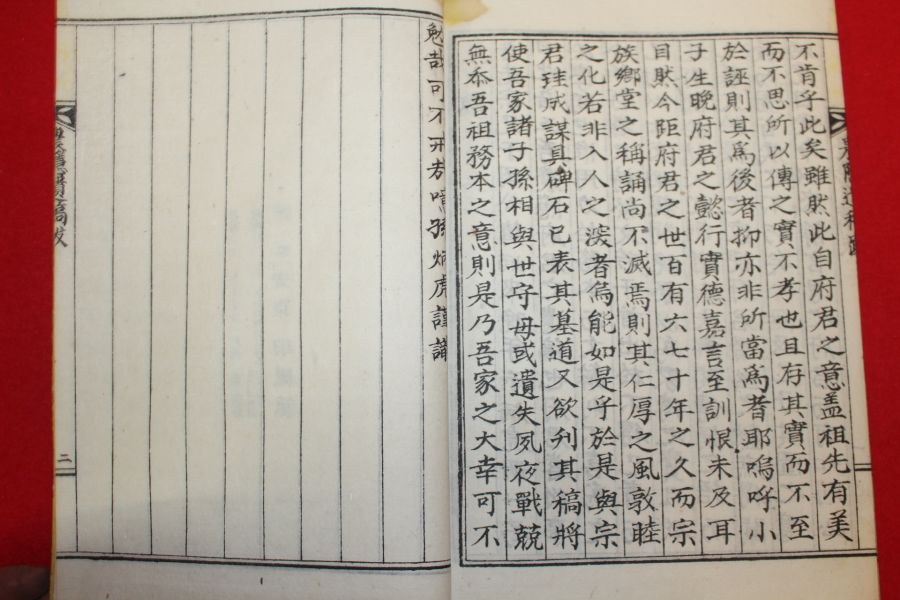 不肯乎此矣雖然此自府君之意盖祖先有美
而不思所以傳之實不孝也且存其實而不至
於誣則其爲後者抑亦非所當爲者耶嗚呼小
子生晩府君之懿行實德嘉言至訓恨未及耳
目然今距府君之世百有六七十年之久而宗
族鄕堂之稱誦尚不滅焉則其仁厚之風敦睦
之化若非入人之深者烏能如是乎於是與宗
君珪成謀具碑石已表其墓道又欲刋其稿將
使吾家諸子孫相與世守毋或遺失夙夜戰兢
無忝吾祖務本之意則是乃吾家之大幸可不
勉哉可不
孫炳虎謹識
二